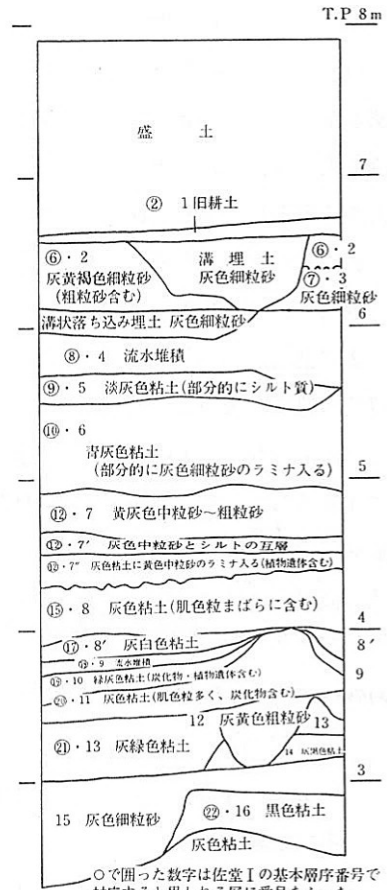 T.P 8m
盛 土
7
② 1 旧耕土
⑥・2
灰黄褐色細粒砂
(粗粒砂含む)
溝 埋 土
灰色細粒砂
⑥・2
⑦・3
灰色細粒砂
6
溝状落ち込み埋土 灰色細粒砂
⑧・4 流水堆積
⑨・5 淡灰色粘土(部分的にシルト質)
⑩・6
青灰色粘土
(部分的に灰色細粒砂のラミナ入る)
5
⑫・7 黄灰色中粒砂～粗粒砂
⑫・7′ 灰色中粒砂とシルトの互層
⑫・7″ 灰色粘土に黄色中粒砂のラミナ入る(植物遺体含む)
⑮・8 灰色粘土(肌色粒まばらに含む)
4
⑰・8′ 灰白色粘土
8′
・9 流水堆積
9
⑲・10 緑灰色粘土(炭化物・植物遺体含む)
⑳・11 灰色粘土(肌色粒多く、炭化物含む)
12 灰黄色粗粒砂
13
㉑・13 灰緑色粘土
14 灰黒色粘土
3
15 灰色細粒砂
㉒・16 黒色粘土
灰色粘土
○で囲った数字は佐堂Ⅰの基本層序番号で